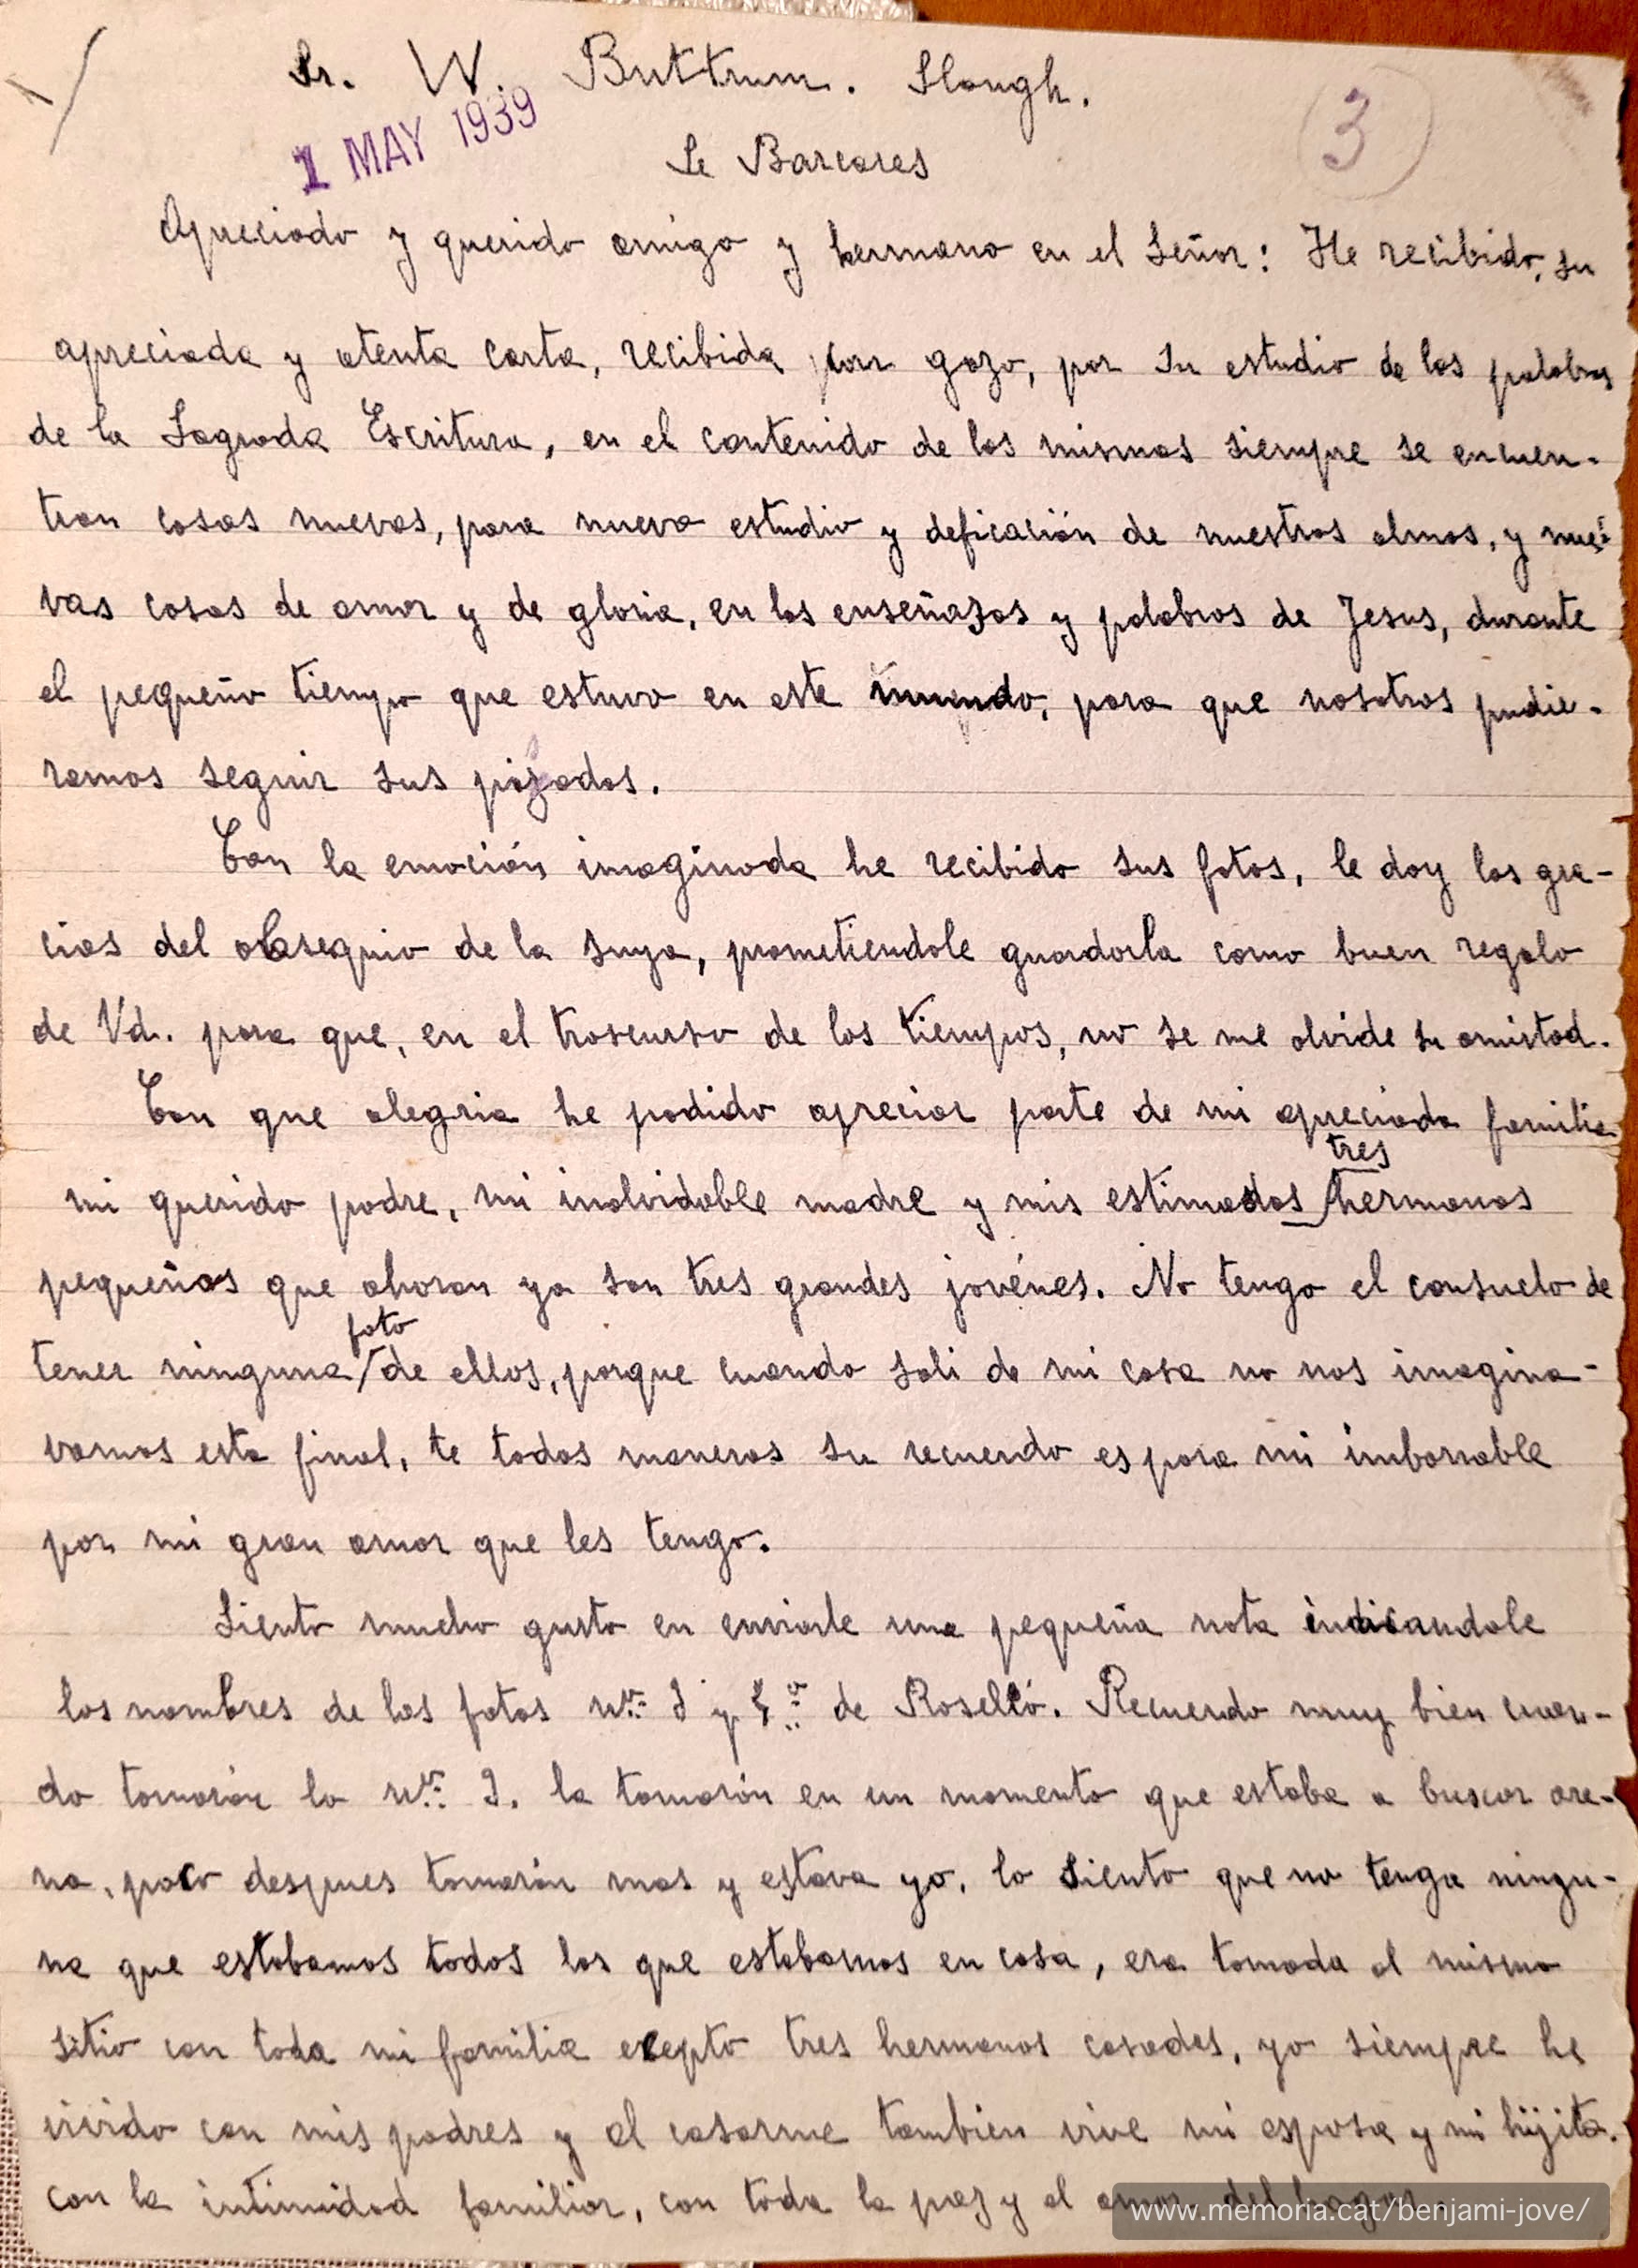 Sr. W. Buttrum. Slough.
3
1 MAY 1939
Le Barcares
Apreciado y querido amigo y hermano en el Señor: He recibido, su
apreciada y atenta carta, recibida con gozo, por su estudio de las palabras
de la Sagrada Escritura, en el contenido de las mismas siempre se encuen-
tran cosas nuevas, para nuevo estudio y deficación de nuestras almas, y nue-
vas cosas de amor y de gloria, en las enseñazas y palabras de Jesus, durante
el pequeño tiempo que estuvo en este mundo, para que nosotros pudie-
ramos seguir sus pisadas.
Con la emoción imaginada he recibido sus fotos, le doy las gra-
cias del obsequio de la suya, prometiendole guardarla como buen regalo
de Vd. para que, en el trascurso de los tiempos, no se me olvide su amistad.
Con que alegria he podido apreciar parte de mi apreciada familia
mi querido padre, mi inolvidable madre y mis estimados tres hermanos
pequeños que ahoran ya son tres grandes jovénes. No tengo el consuelo de
tener ninguna foto de ellos, porque cuando sali de mi casa no nos imagina-
vamos esta final, te todas maneras su recuerdo es para mi imborrable
por mi gran amor que les tengo.
Siento mucho gusto en enviarle una pequeña nota indicandole
los nombres de las fotos y de Roselló. Recuerdo muy bien cuan-
do tomarón la la tomarón en un momento que estaba a buscar are-
na, poco despues tomarón mas y estava yo, lo siento que no tenga ningu-
na que estabamos todos los que estabamos en casa, era tomada al mismo
sitio con toda mi familia ecepto tres hermanos casados, yo siempre he
vivido con mis padres y al casarme tambien vive mi esposa y mi hijita.
con la intimidad familiar, con toda la paz y el amor del hogar.
www.memoria.cat/benjami-jove/